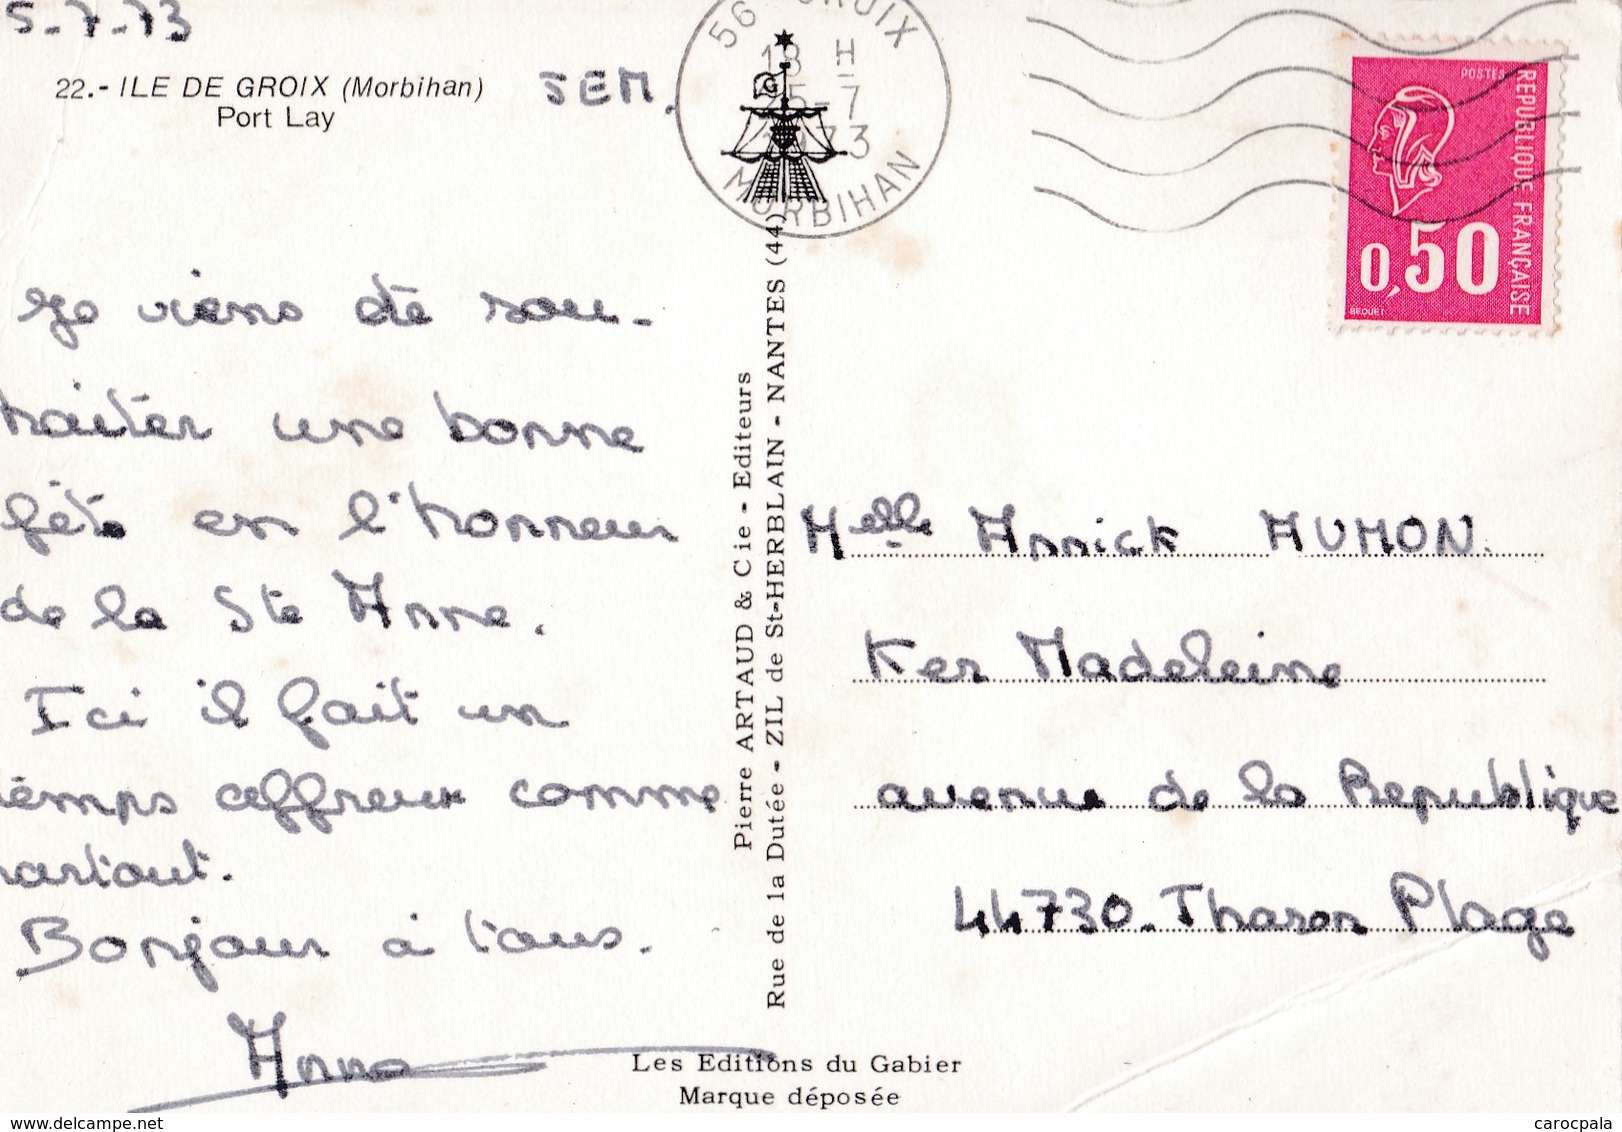 5-7-73
22.- ILE DE GROIX (Morbihan)
Port Lay
SEM.
56 GROIX
18 H
25-7
1973
MORBIHAN
POSTES
REPUBLIQUE FRANÇAISE
0,50
BEQUET
Je viens te sou-
haiter une bonne
fête en l'honneur
de la Ste Anne.
Ici il fait un
temps affreux comme
partout.
Bonjour à tous.
Anne
Pierre ARTAUD & Cie - Editeurs
Rue de la Dutée - ZIL de St-HERBLAIN - NANTES (44)
Melle Annick AUMON.
Ker Madeleine
avenue de la Republique
44730. Tharon Plage
Les Editions du Gabier
Marque déposée
delcampe.net
carocpala